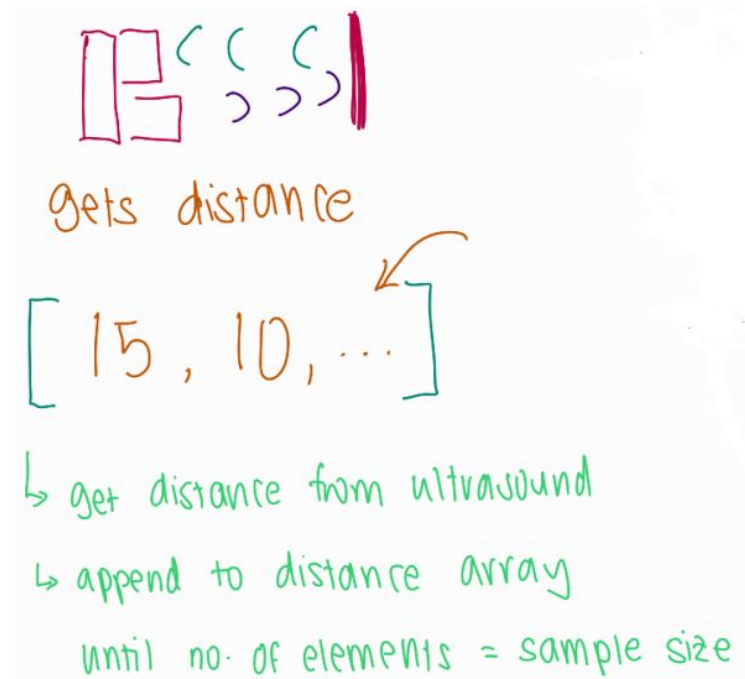 gets distance
[15, 10, ...]
↳ get distance from ultrasound
↳ append to distance array
until no. of elements = sample size